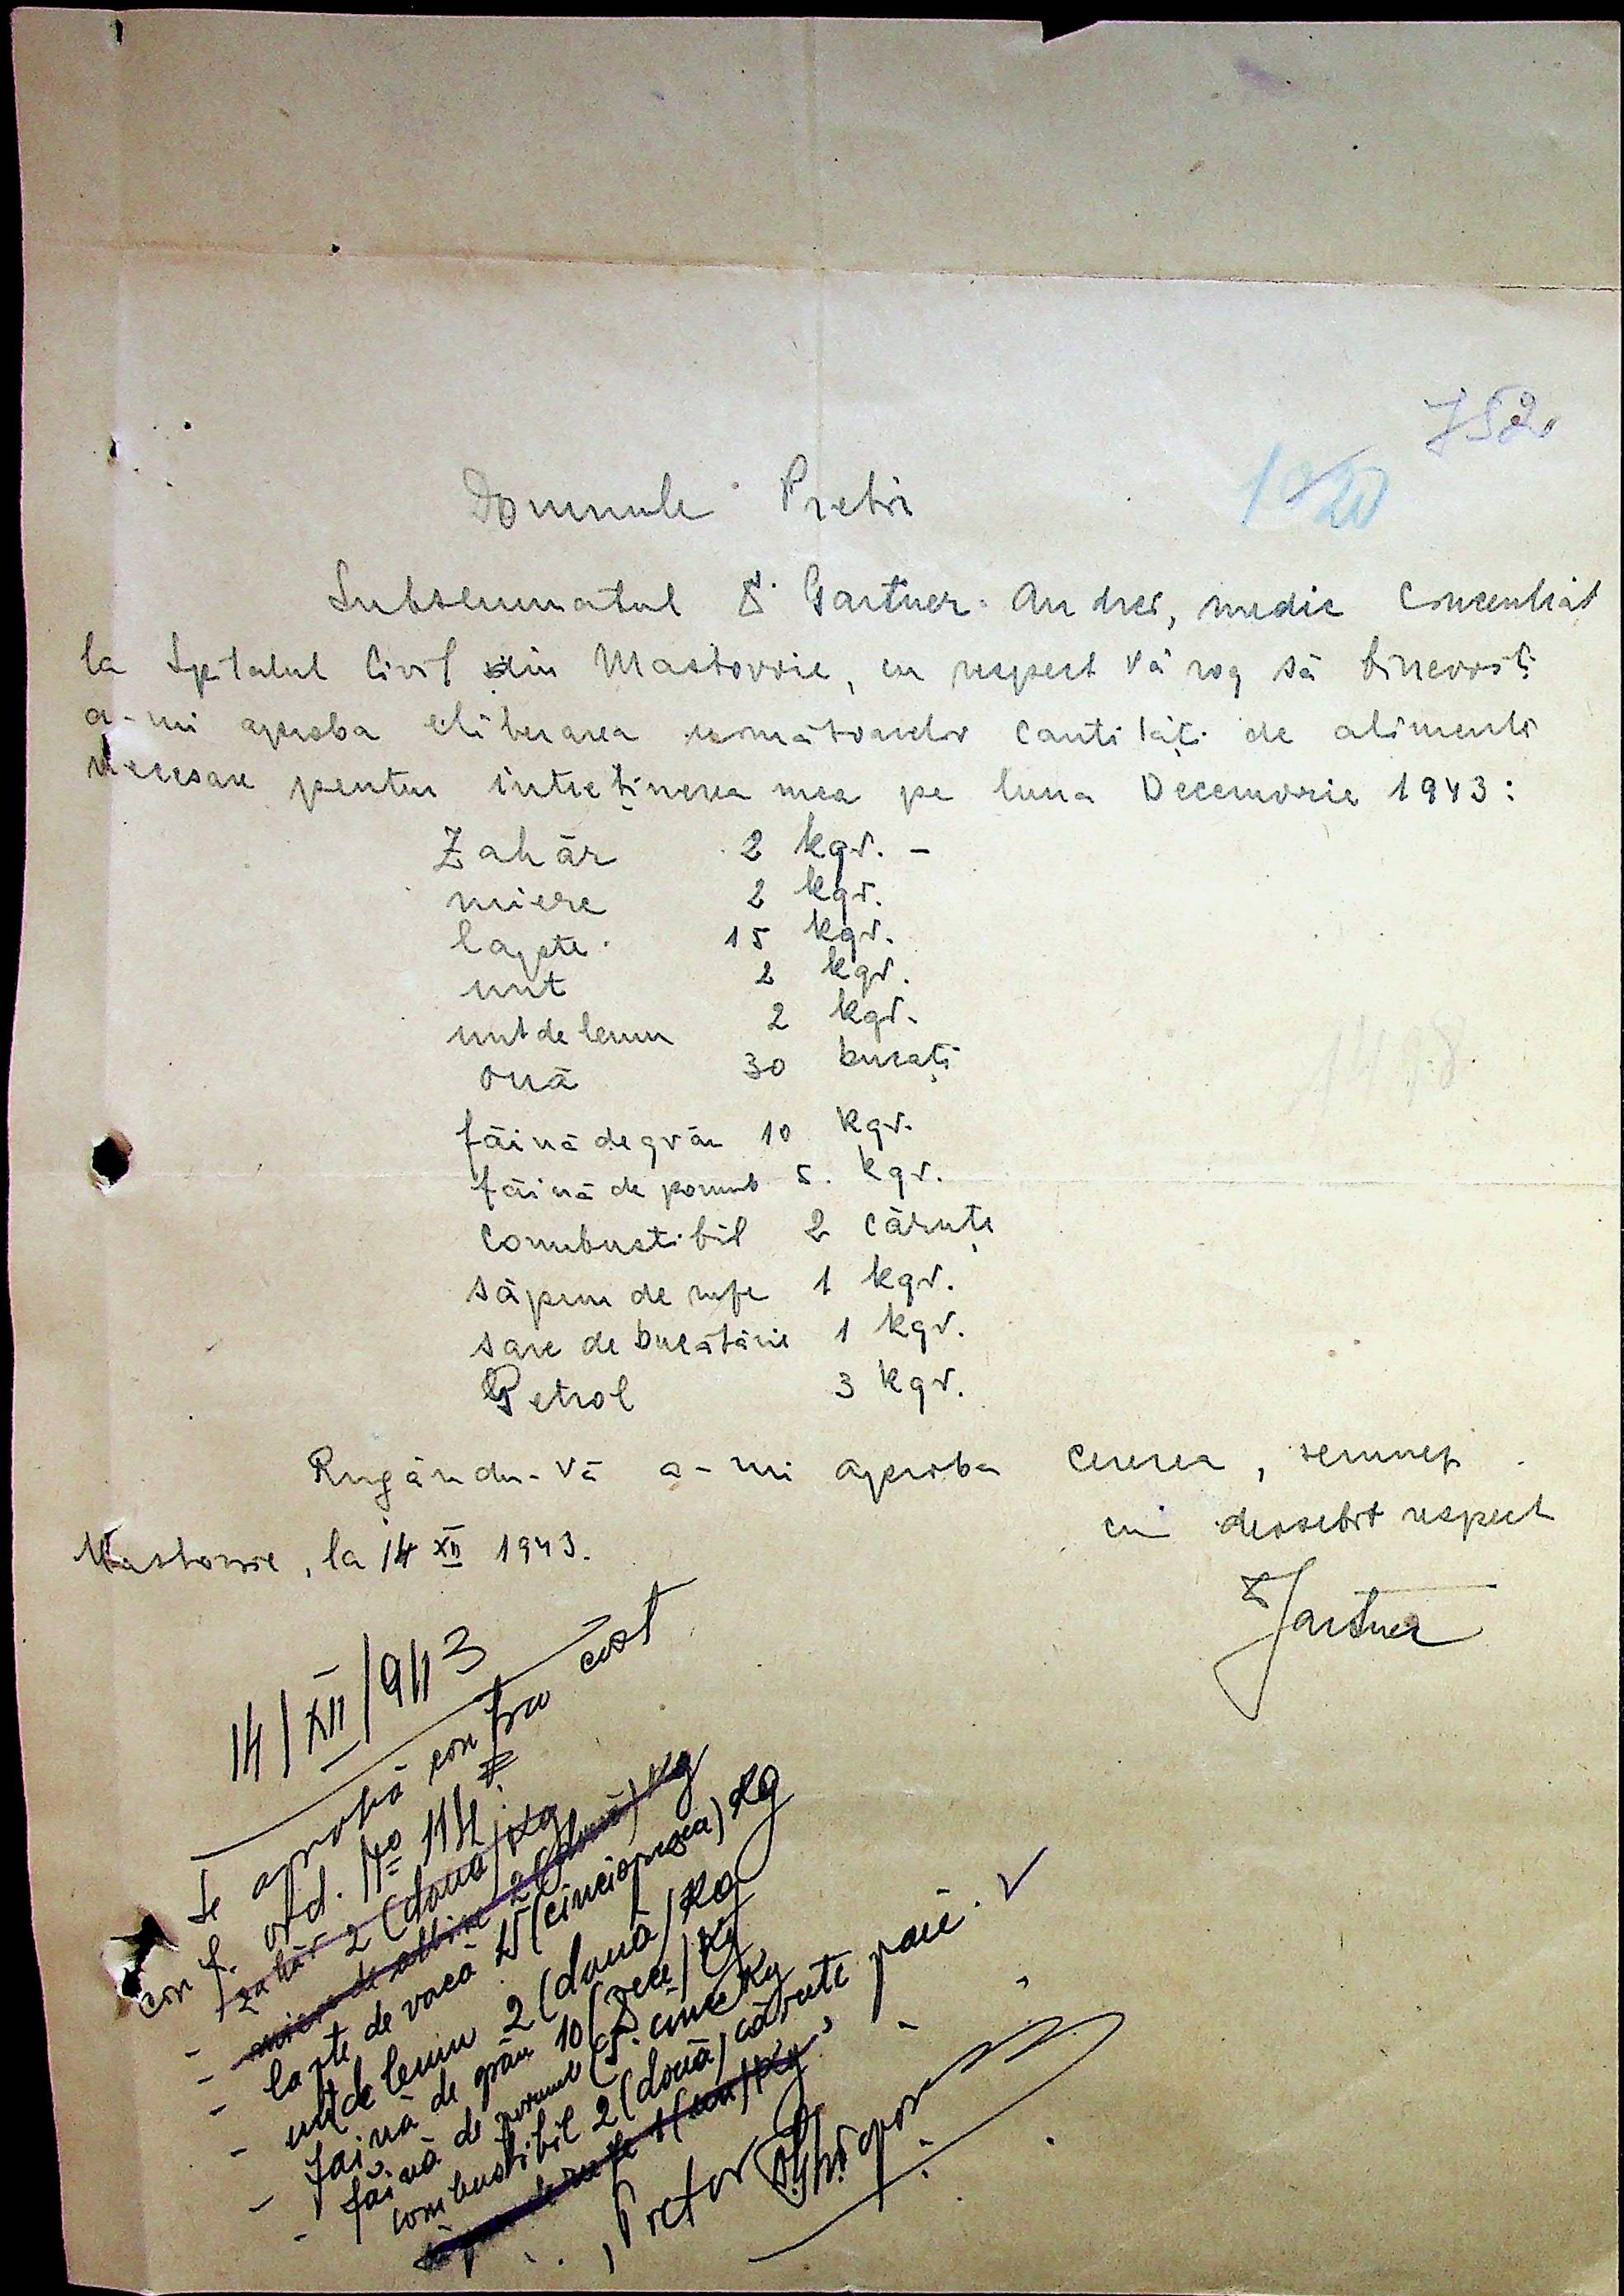 752
1020
Domnule Pretor
Subsemnatul Dr. Gartner Andrei, medic concentrat
la Spitalul Civil din Mastovoie, cu respect Vă rog să binevoiți
a-mi aproba eliberarea următoarelor cantități de alimente
necesare pentru întreținerea mea pe luna Decemvrie 1943:
Zahăr 2 kgr. -
miere 2 kgr.
lapte 15 kgr.
unt 2 kgr.
unt de lemn 2 kgr.
ouă 30 bucați
făină de grâu 10 kgr.
făină de porumb 5. kgr.
Combustibil 2 căruțe
săpun de rufe 1 kgr.
sare de bucătărie 1 kgr.
Petrol 3 kgr.
Rugându-Vă a-mi aproba cererea, semnez
cu deosebit respect
Mastovoie, la 14 XII 1943.
Gartner
14/XII/943
Se aprobă contra cost
conf. Ord. No
- zahăr 2 (două) kg
- miere de albine 2 (două) kg
- lapte de vacă 15 (cincisprezea) kg
- unt de lemn 2 (două) kg
- făină de grâu 10 (zece) kg
- făină de porumb (5. cinci kg
combustibil 2 (două) cărute paie.
săpun de rufe 1 (un) kg
Pretor